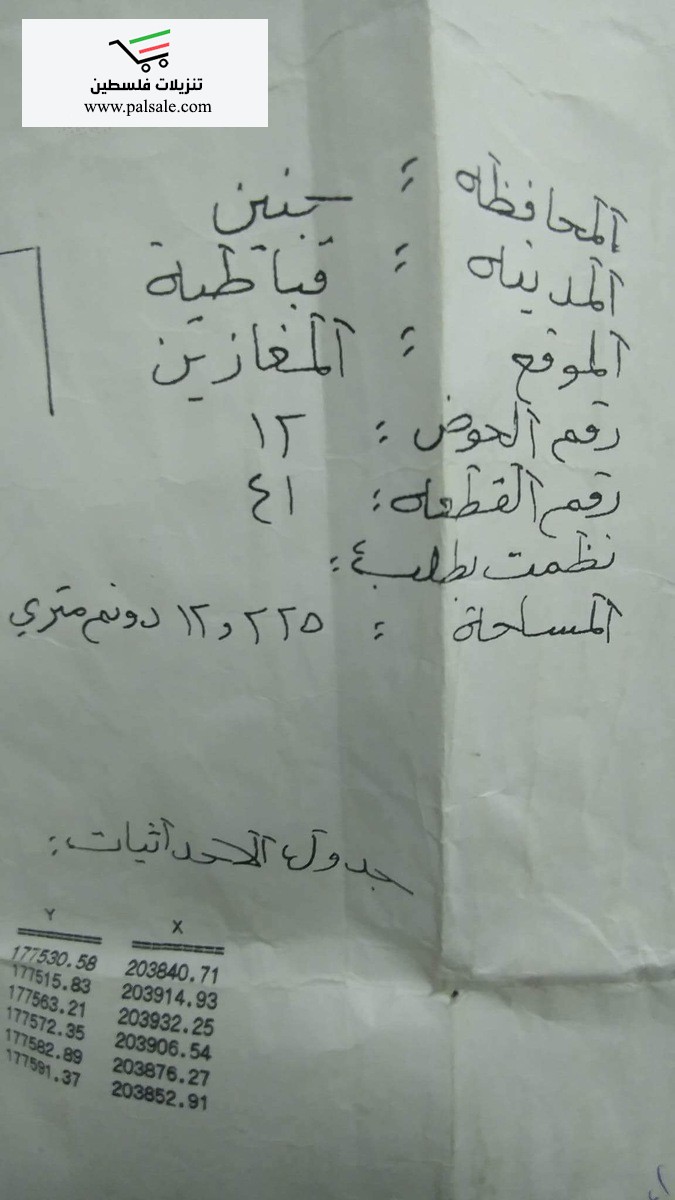 تنزيلات فلسطين
www.palsale.com
المحافظه : جنين
المدينه : قباطية
الموقع : المغازين
رقم الحوض : ١٢
رقم القطعه : ٤١
نظمت بطلب :
المساحة : ١٢,٢٢٥ دونم متري
جدول الاحداثيات :
Y X
177530.58 203840.71
177515.83 203914.93
177563.21 203932.25
177572.35 203906.54
177582.89 203876.27
177591.37 203852.91